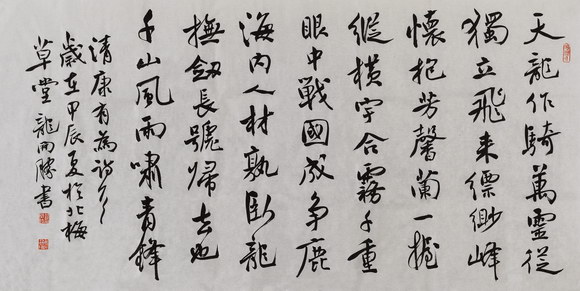 天龍作騎萬靈從
獨立飛來縹緲峰
懷抱芳馨蘭一握
縱橫宇合霧千重
眼中戰國成爭鹿
海內人材孰臥龍
撫劍長號歸去也
千山風雨嘯青鋒
清康有為詩
歲在甲辰夏於北梅
草堂 龍開勝書